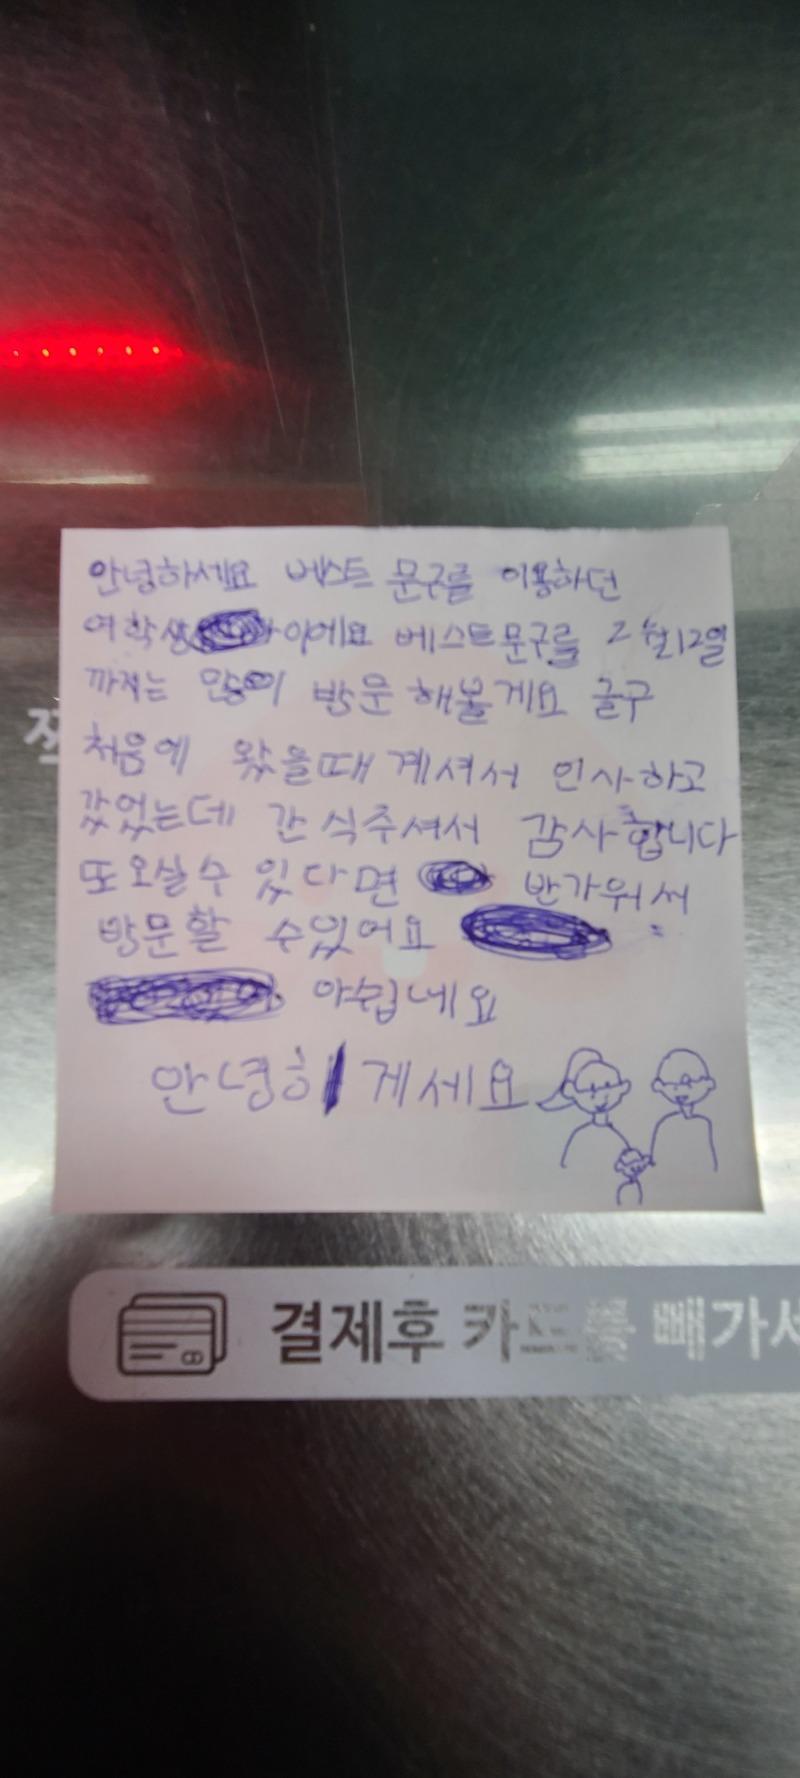 안녕하세요 베스트 문구를 이용하던
여학생이에요 베스트문구를 2월12일
까지는 많이 방문 해볼게요 글구
처음에 왔을때 계셔서 인사하고
갔었는데 간식주셔서 감사합니다
또오실수 있다면 반가워서
방문할 수있어요
아쉽네요
안녕히 게세요
결제후 카드를 빼가세